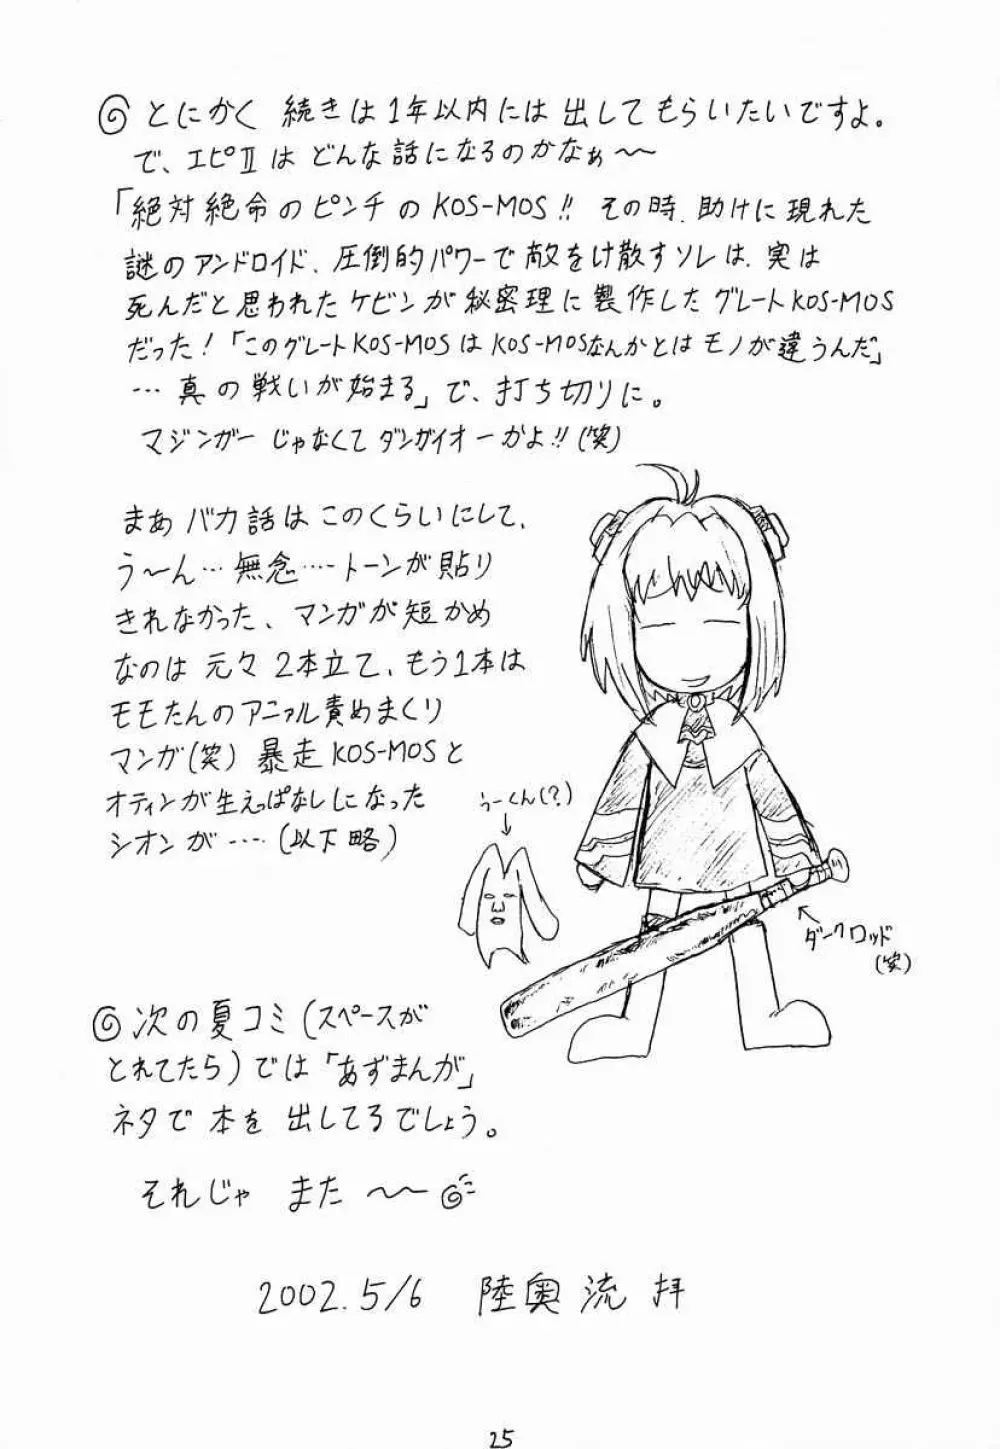 ◎とにかく 続きは1年以内には出してもらいたいですよ。
で、エピⅡはどんな話になるのかなぁ〜〜
「絶対絶命のピンチのKOS-MOS!! その時、助けに現れた
謎のアンドロイド、圧倒的パワーで敵をけ散すソレは、実は
死んだと思われたケビンが秘密理に製作したグレートKOS-MOS
だった!「このグレートKOS-MOSはKOS-MOSなんかとはモノが違うんだ」
…真の戦いが始まる」で、打ち切りに。
マジンガーじゃなくてダンガイオーかよ!!(笑)
まあバカ話はこのくらいにして、
う〜ん…無念…トーンが貼り
きれなかった、マンガが短かめ
なのは元々2本立て、もう1本は
うーくん(?)
ダークロッド
(笑)
◎次の夏コミ(スペースが
とれてたら)では「あずまんが」
ネタで本を出してるでしょう。
それじゃ また〜〜
2002.5/6 陸奥流 拝
25